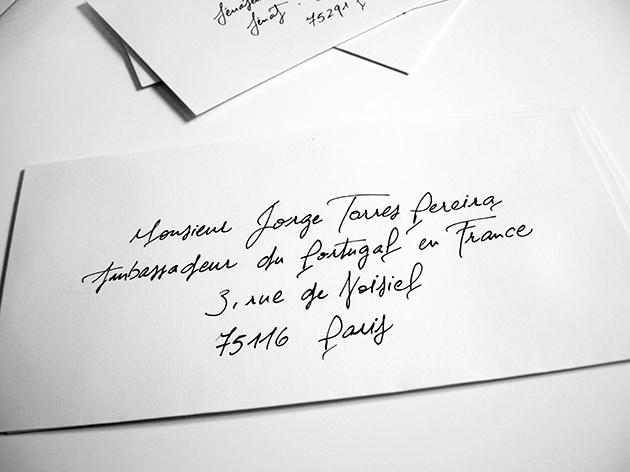 Sénat
75291 P
Monsieur Jorge Torres Pereira
Ambassadeur du Portugal en France
3, rue de Noisiel
75116 Paris